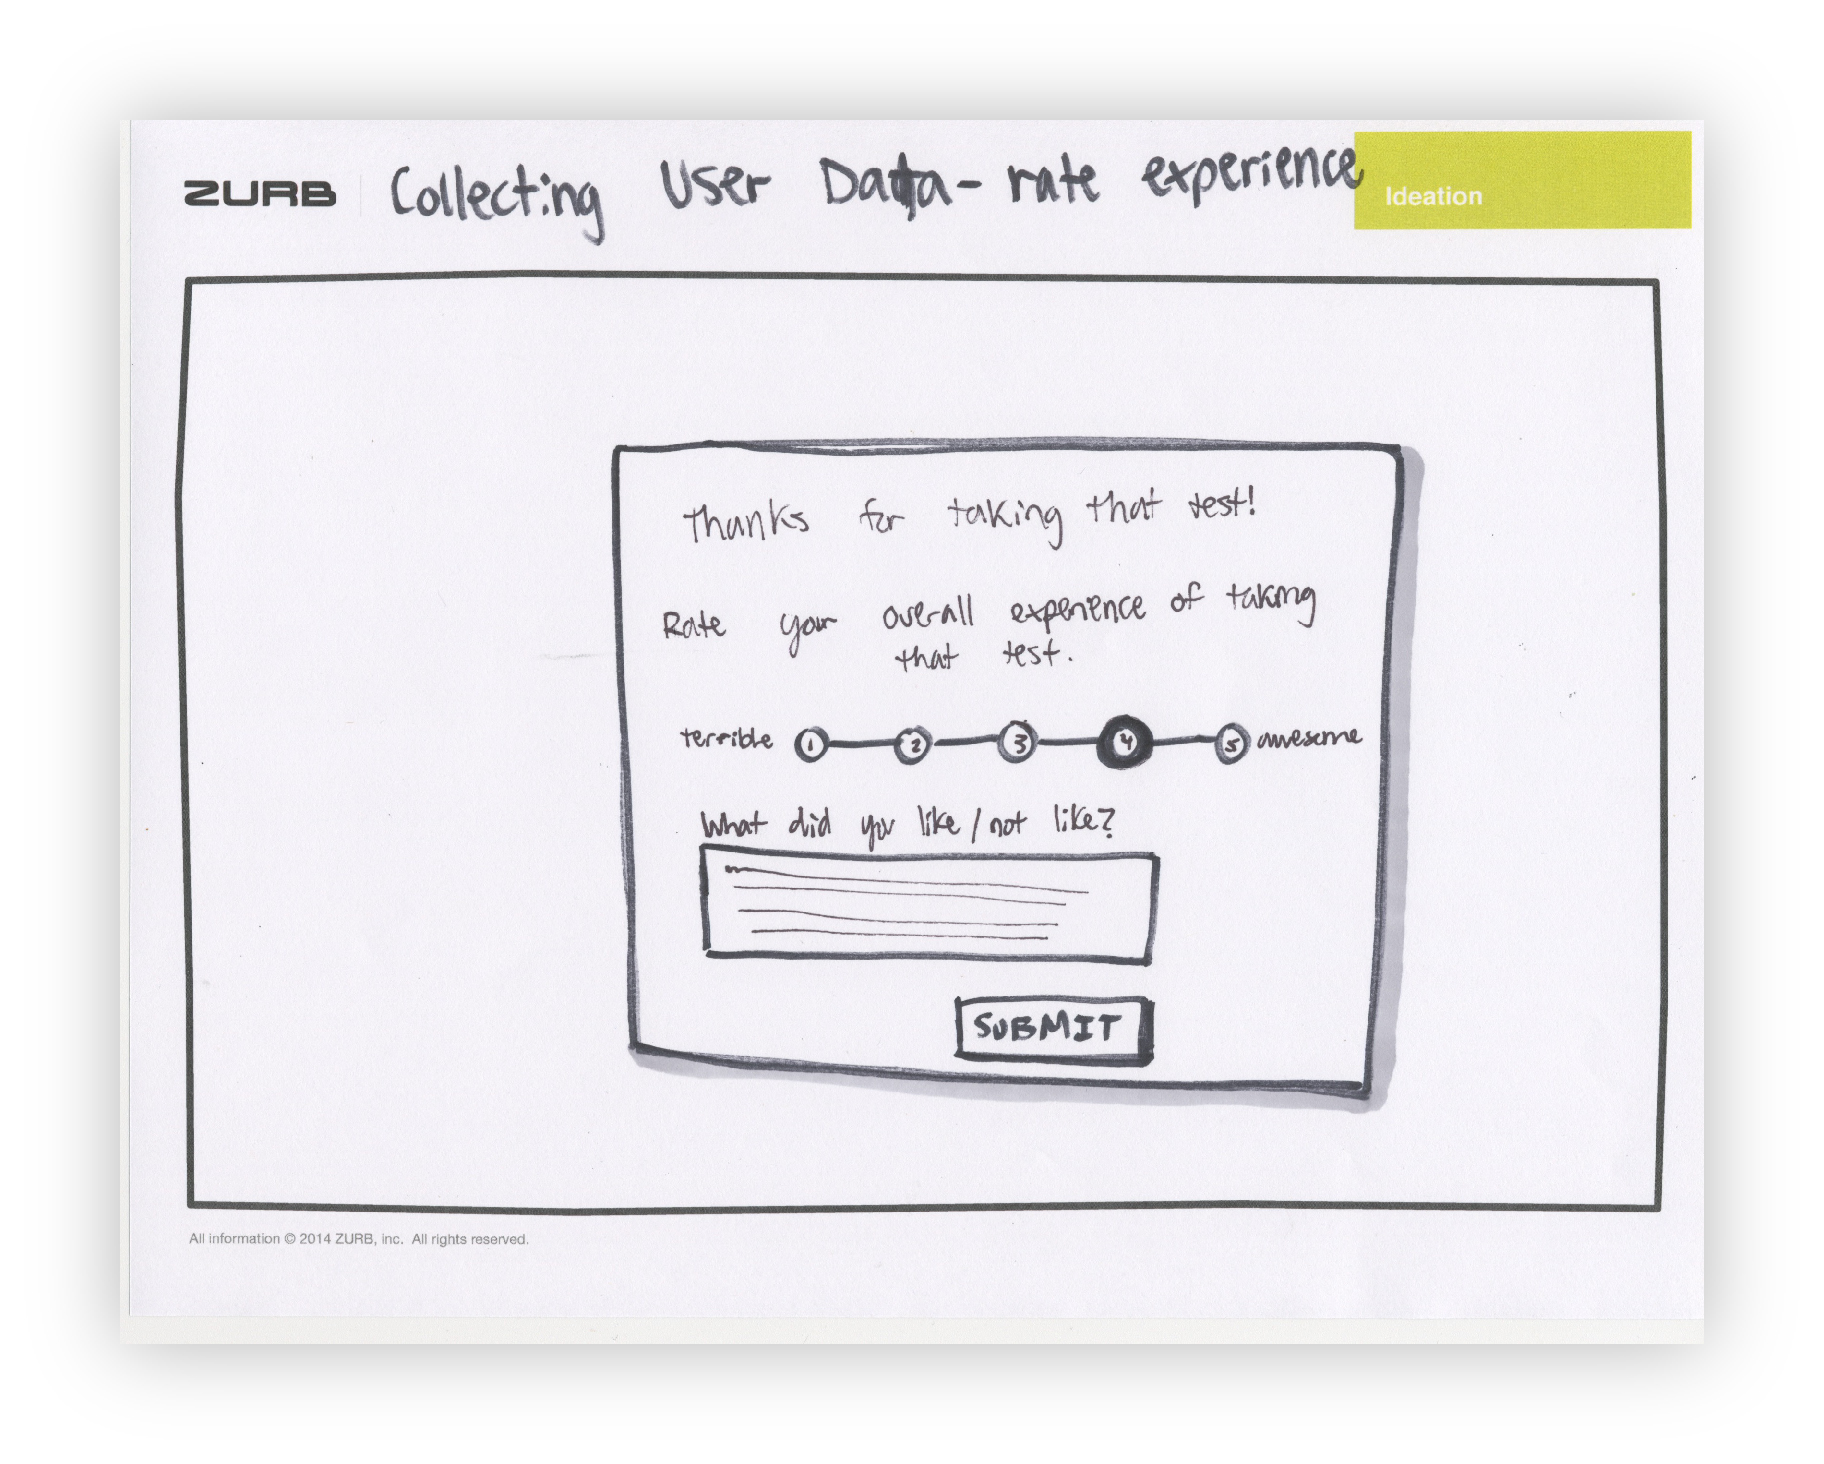 ZURB Collecting User Data - rate experience Ideation
Thanks for taking that test!
Rate your overall experience of taking
that test.
terrible 1 2 3 4 5 awesome
What did you like / not like?
SUBMIT
All information © 2014 ZURB, inc. All rights reserved.